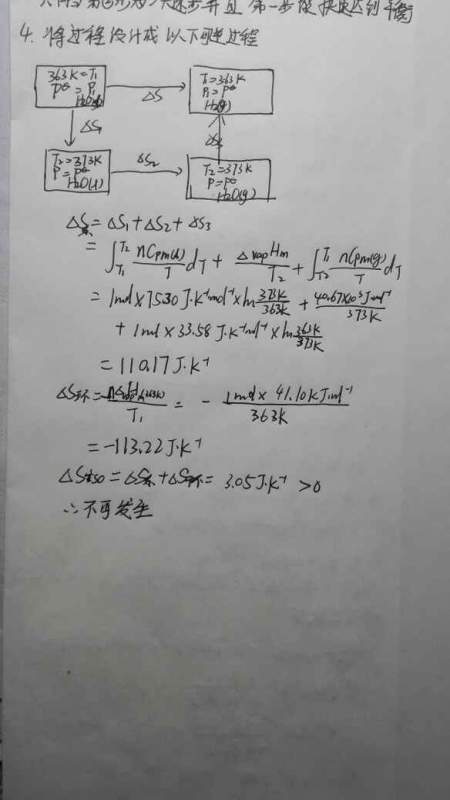 4. 将过程设计成以下可逆过程
363K=T₁
P^θ=P₁
H₂O(l)
ΔS
T₁=363K
P₁=P^θ
H₂O(g)
ΔS₁
ΔS₃
T₂=373K
P=P^θ
H₂O(l)
ΔS₂
T₂=373K
P=P^θ
H₂O(g)
ΔS系=ΔS₁+ΔS₂+ΔS₃
=∫_{T₁}^{T₂} nCp,m(l)/T dT + ΔvapHm/T₂ + ∫_{T₂}^{T₁} nCp,m(g)/T dT
=1mol×75.30J·K⁻¹mol⁻¹×ln 373K/363K + 40.67×10³J·mol⁻¹/373K
+ 1mol×33.58J·K⁻¹mol⁻¹×ln 363K/373K
=110.17J·K⁻¹
ΔS环= /T₁ = - 1mol×41.10KJ·mol⁻¹/363K
=-113.22J·K⁻¹
ΔS iso=ΔS系+ΔS环= 3.05J·K⁻¹ >0
∴不可发生